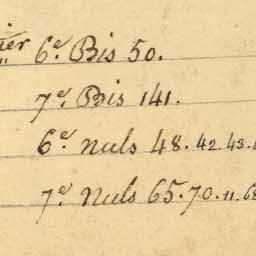 ier 6e. Bis 50.
7e. Bis 141.
6e. nuls 48. 42. 43.
7e. Nuls 65. 70. 11. 68